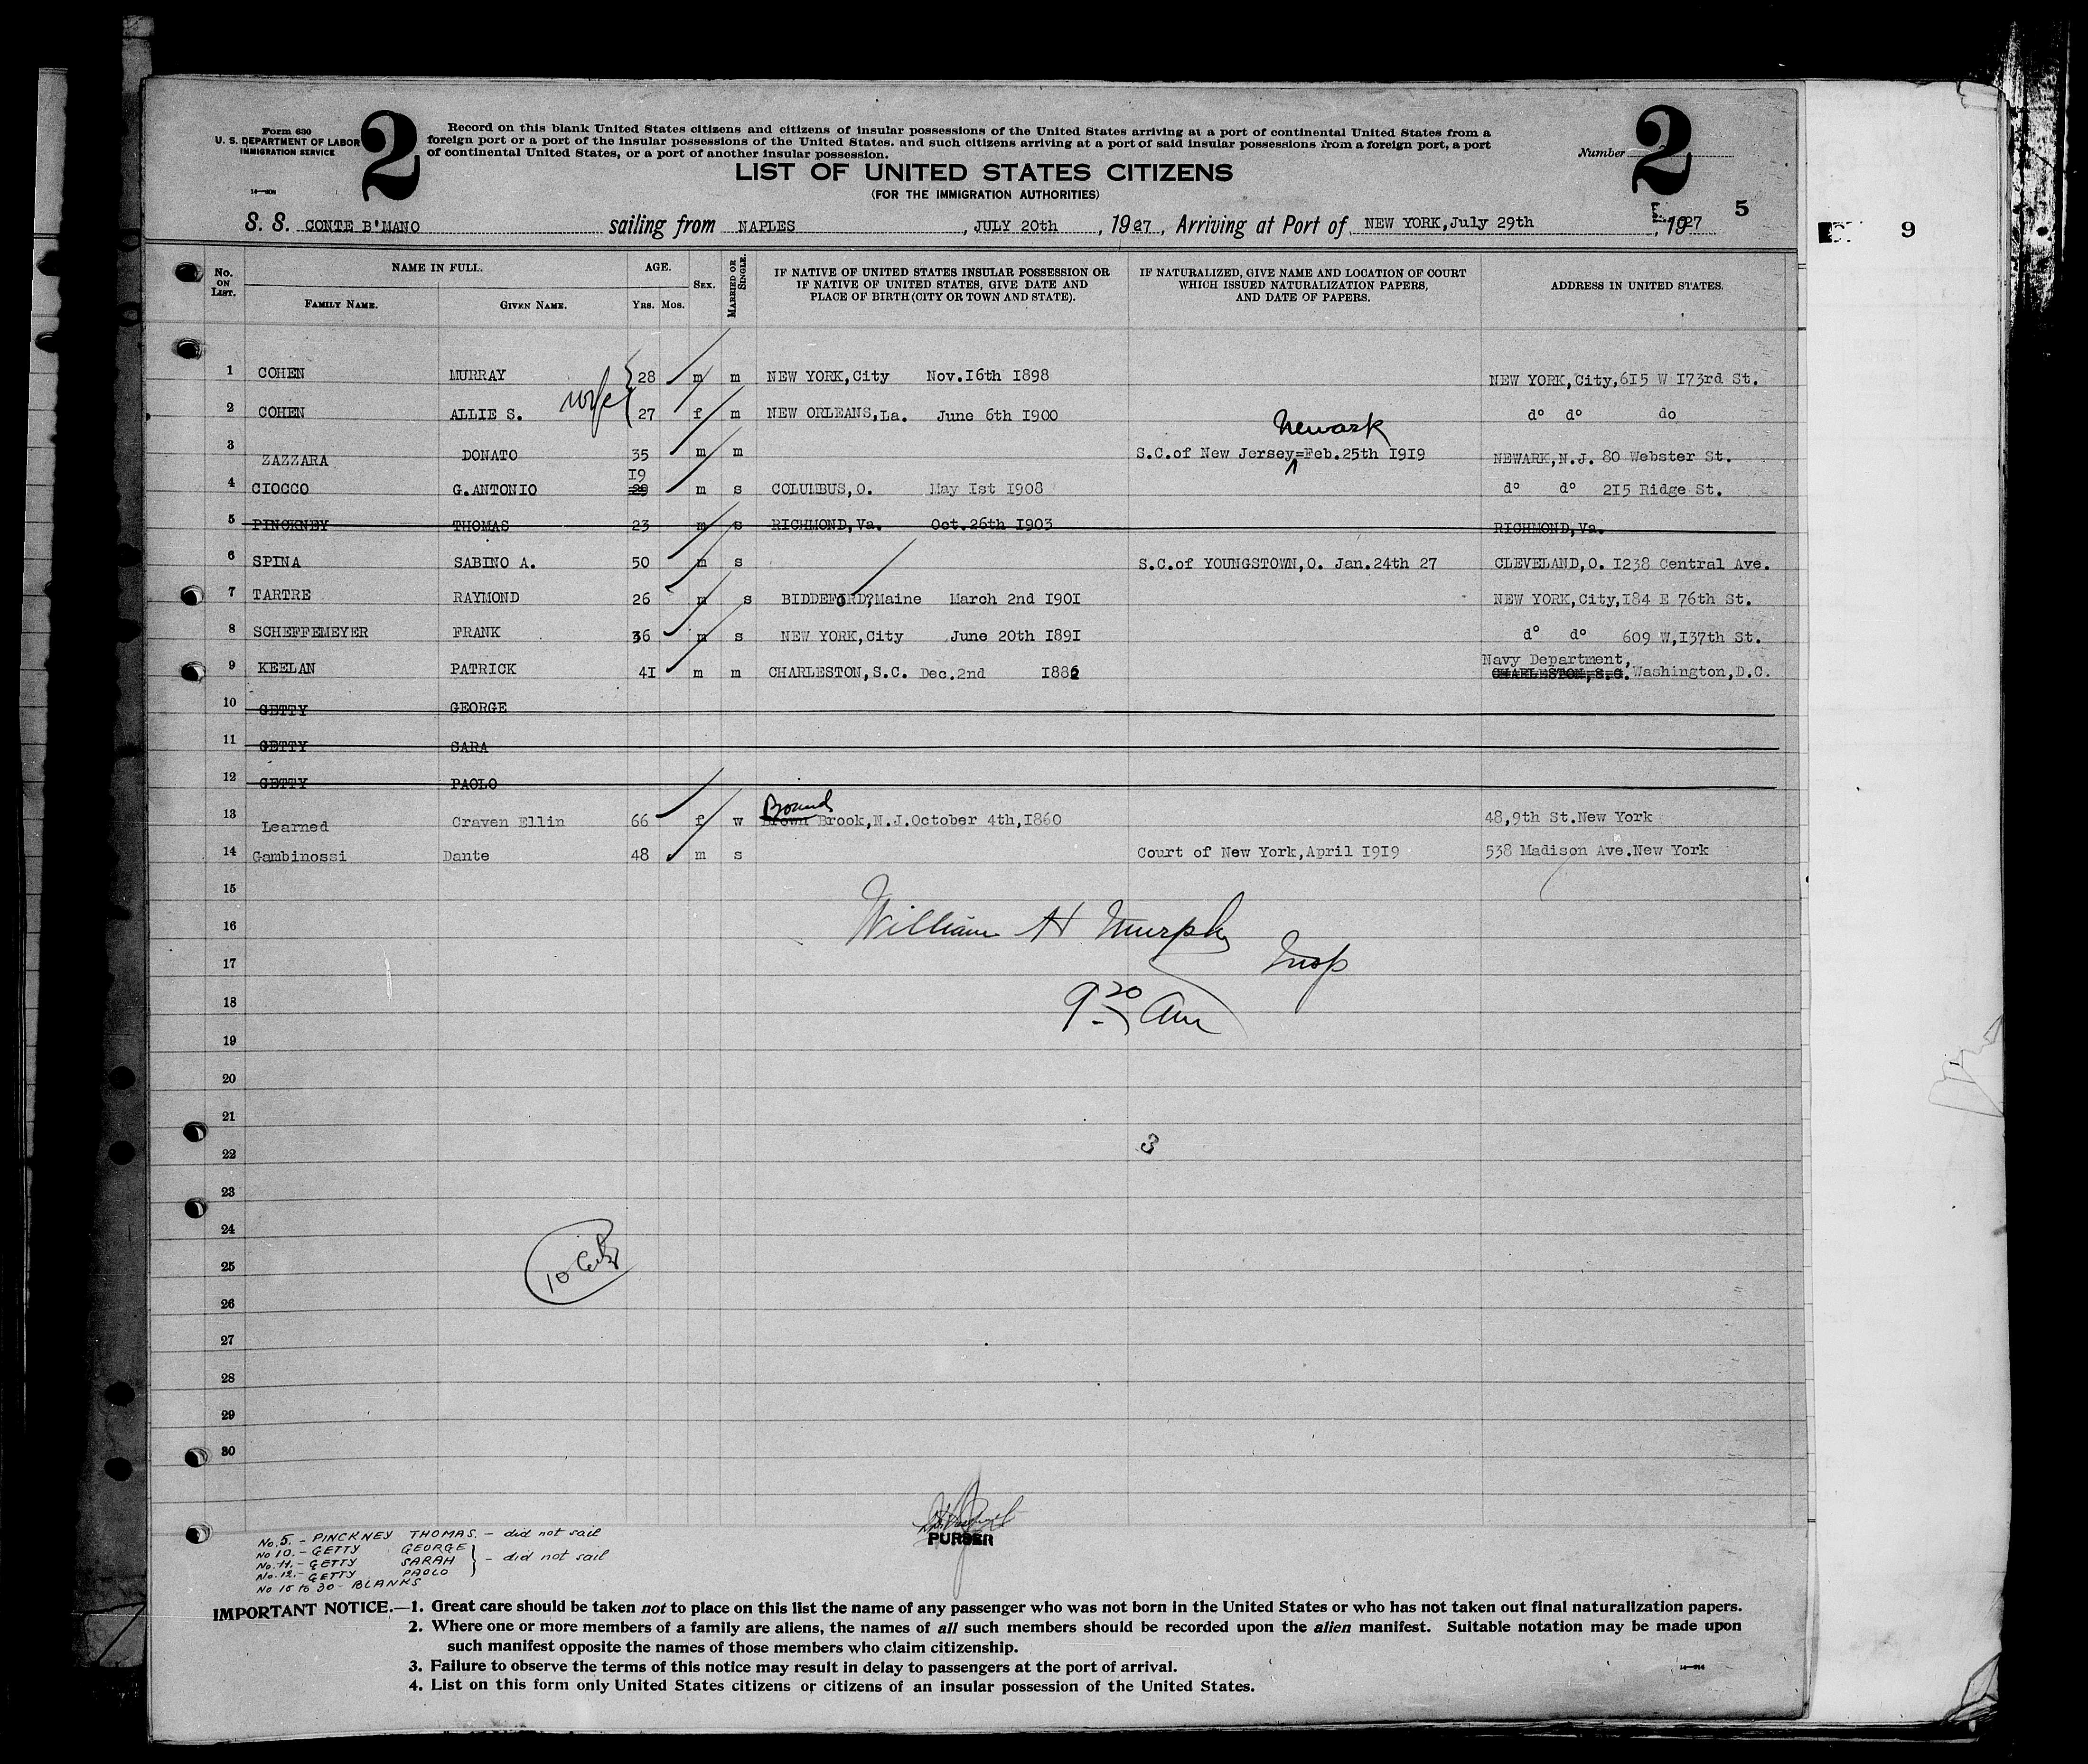 Form 630
U. S. DEPARTMENT OF LABOR
IMMIGRATION SERVICE
2
Record on this blank United States citizens and citizens of insular possessions of the United States arriving at a port of continental United States from a
foreign port or a port of the insular possessions of the United States, and such citizens arriving at a port of said insular possessions from a foreign port, a port
of continental United States, or a port of another insular possession.
Number 2
LIST OF UNITED STATES CITIZENS
(FOR THE IMMIGRATION AUTHORITIES)
5
9
S. S. CONTE B'MANO sailing from NAPLES, JULY 20th, 1927, Arriving at Port of NEW YORK, July 29th, 1927
No. ON LIST. NAME IN FULL. AGE. SEX. MARRIED OR SINGLE. IF NATIVE OF UNITED STATES INSULAR POSSESSION OR IF NATIVE OF UNITED STATES, GIVE DATE AND PLACE OF BIRTH (CITY OR TOWN AND STATE). IF NATURALIZED, GIVE NAME AND LOCATION OF COURT WHICH ISSUED NATURALIZATION PAPERS, AND DATE OF PAPERS. ADDRESS IN UNITED STATES.
FAMILY NAME. GIVEN NAME. YRS. MOS.
1 COHEN MURRAY 28 m m NEW YORK,City Nov.16th 1898 NEW YORK,City,615 W 173rd St.
wife
2 COHEN ALLIE S. 27 f m NEW ORLEANS,La. June 6th 1900 do do do
Newark
3 ZAZZARA DONATO 35 m m S.C.of New Jersey=Feb.25th 1919 NEWARK,N.J. 80 Webster St.
19
4 CIOCCO G.ANTONIO 29 m s COLUMBUS,O. May 1st 1908 do do 215 Ridge St.
5 PINCKNEY THOMAS 23 m s RICHMOND,Va. Oct.26th 1903 RICHMOND,Va.
6 SPINA SABINO A. 50 m s S.C.of YOUNGSTOWN,O. Jan.24th 27 CLEVELAND,O. 1238 Central Ave.
7 TARTRE RAYMOND 26 m s BIDDEFORD?Maine March 2nd 1901 NEW YORK,City,184 E 76th St.
8 SCHEFFEMEYER FRANK 36 m s NEW YORK,City June 20th 1891 do do 609 W,137th St.
Navy Department,
9 KEELAN PATRICK 41 m m CHARLESTON,S.C. Dec.2nd 1886 CHARLESTON,S.C. Washington,D.C.
10 GETTY GEORGE
11 GETTY SARA
12 GETTY PAOLO
Bound
13 Learned Craven Ellin 66 f w Brown Brook,N.J.October 4th,1860 48,9th St.New York
14 Gambinossi Dante 48 m s Court of New York,April 1919 538 Madison Ave.New York
15
16 William H Murphy
17 Insp
18 9 20 am
19
20
21
3
22
23
24
25
26
27
28
29
30
PURSER
No.5. - PINCKNEY THOMAS. - did not sail
No 10. - GETTY GEORGE
No. 11. - GETTY SARAH - did not sail
No. 12. - GETTY PAOLO
No 15 to 30 - BLANKS
IMPORTANT NOTICE.—1. Great care should be taken not to place on this list the name of any passenger who was not born in the United States or who has not taken out final naturalization papers.
2. Where one or more members of a family are aliens, the names of all such members should be recorded upon the alien manifest. Suitable notation may be made upon
such manifest opposite the names of those members who claim citizenship.
3. Failure to observe the terms of this notice may result in delay to passengers at the port of arrival.
4. List on this form only United States citizens or citizens of an insular possession of the United States.